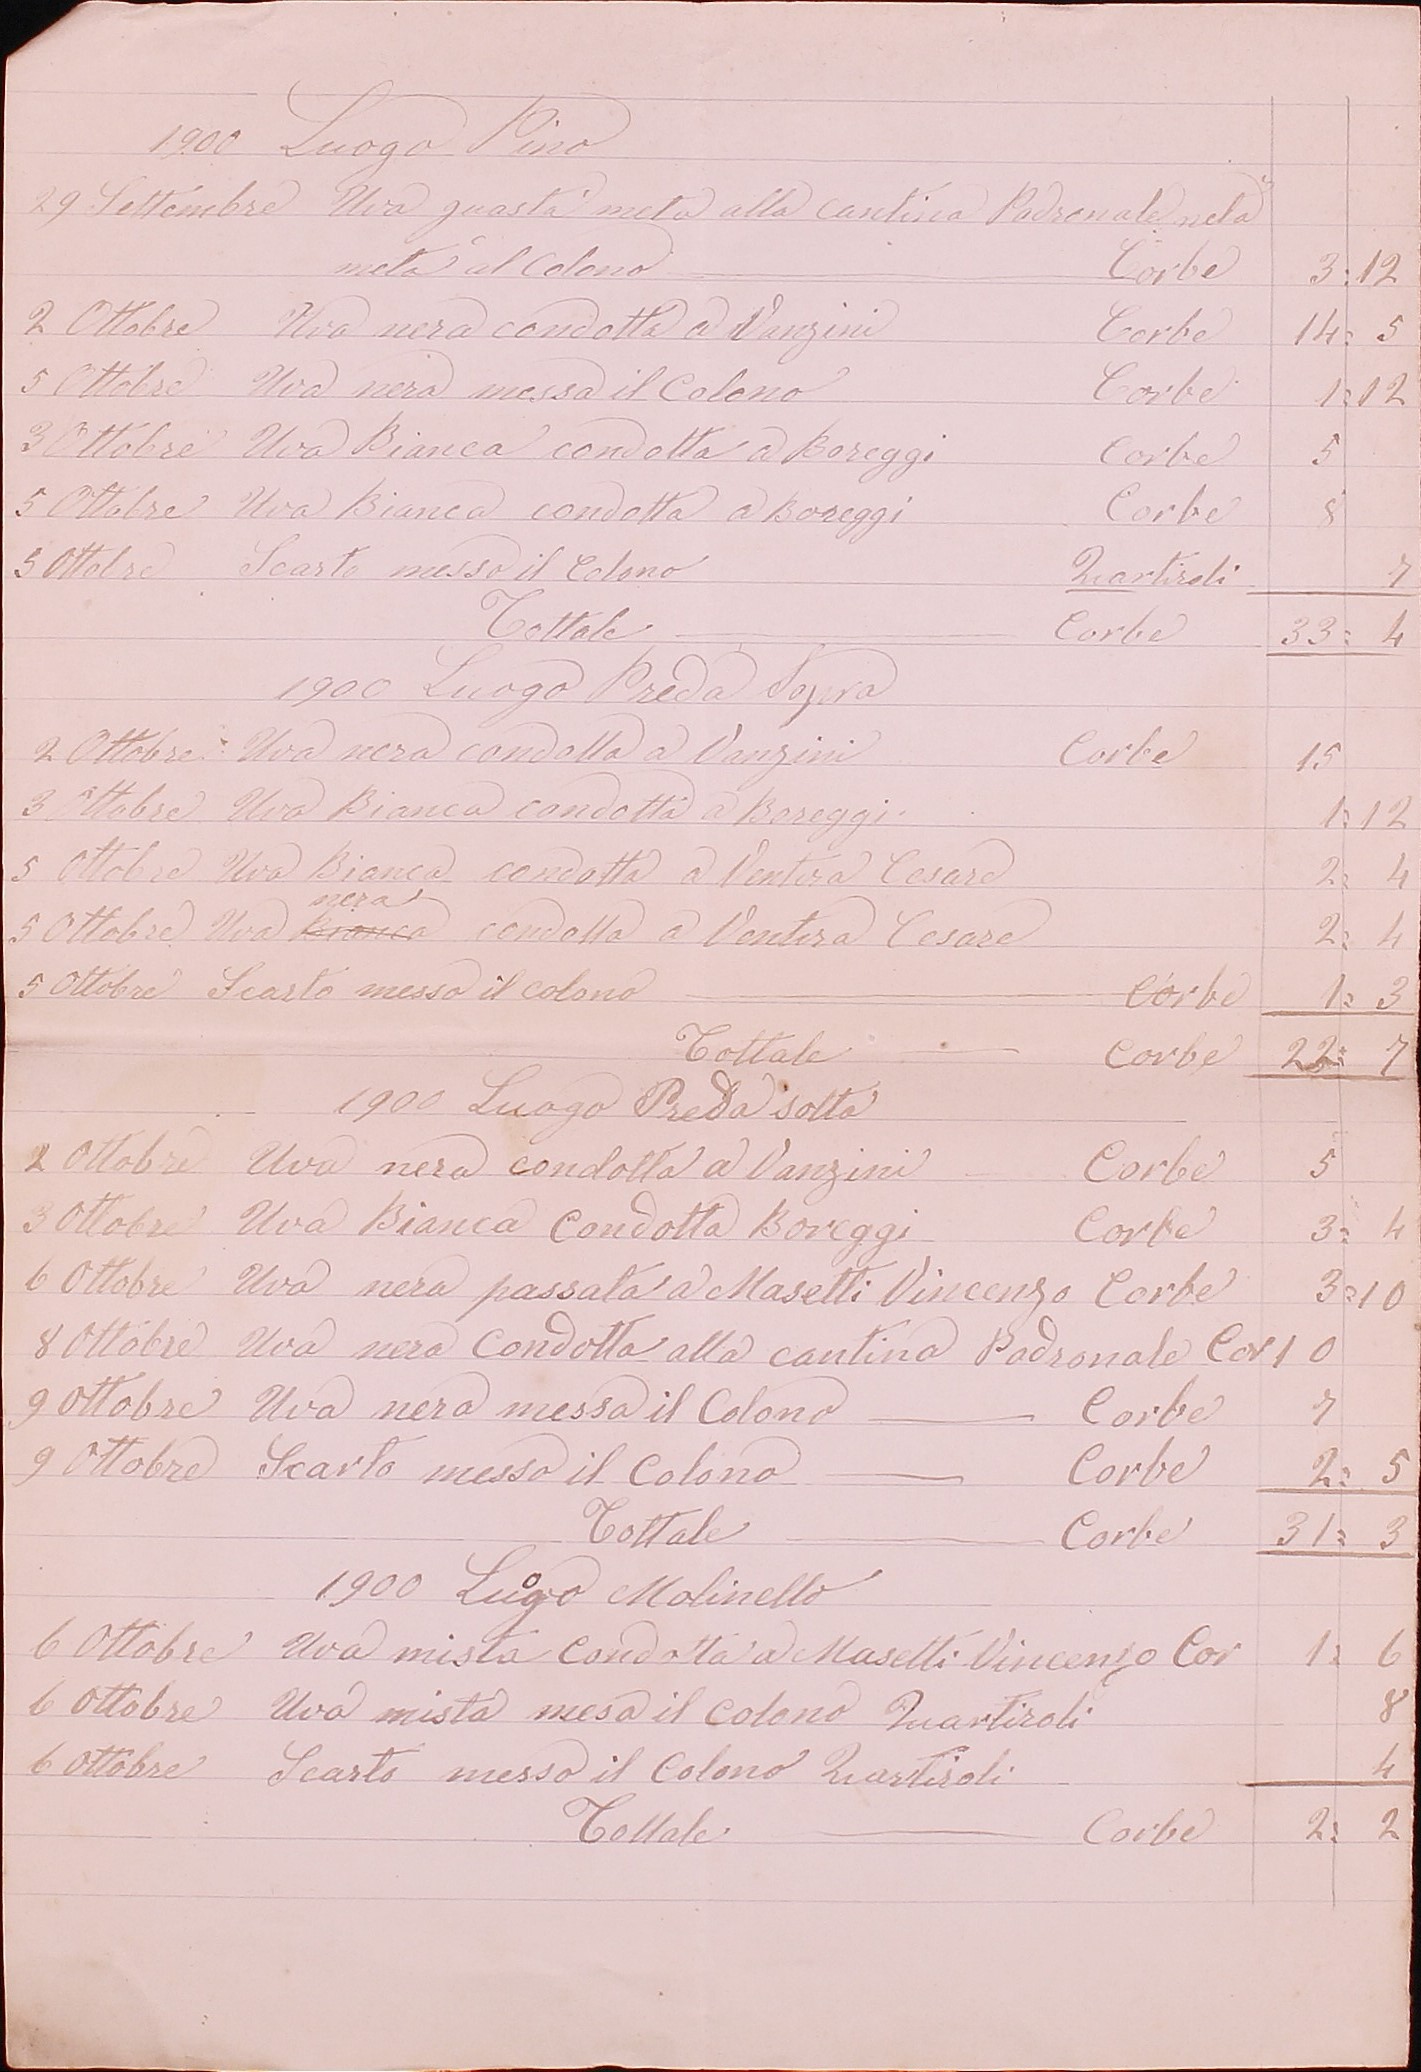 1900 Luogo Pino
29 Settembre Uva guasta metà alla cantina Padronale
metà al Colono Corbe 3:12
2 Ottobre Uva nera condotta a Vanzini Corbe 14: 5
5 Ottobre Uva nera messa il Colono Corbe 1:12
3 Ottobre Uva Bianca condotta a Boreggi Corbe 5
5 Ottobre Uva Bianca condotta a Boreggi Corbe 8
5 Ottobre Scarto messo il Colono Quartiroli 7
Tottale Corbe 33: 4
1900 Luogo Preda Sopra
2 Ottobre Uva nera condotta a Vanzini Corbe 15
3 Ottobre Uva Bianca condotta a Boreggi 1:12
5 Ottobre Uva Bianca condotta a Ventura Cesare 2: 4
nera
5 Ottobre Uva Bianca condotta a Ventura Cesare 2: 4
5 Ottobre Scarto messo il colono Corbe 1: 3
Tottale Corbe 22: 7
1900 Luogo Preda sotto
2 Ottobre Uva nera condotta a Vanzini Corbe 5
3 Ottobre Uva Bianca Condotta Boreggi Corbe 3: 4
6 Ottobre Uva nera passata a Masetti Vincenzo Corbe 3:10
8 Ottobre Uva nera Condotta alla cantina Padronale Cor 10
9 Ottobre Uva nera messa il Colono Corbe 7
9 Ottobre Scarto messo il Colono Corbe 2: 5
Tottale Corbe 31: 3
1900 Luogo Molinello
6 Ottobre Uva mista Condotta a Masetti Vincenzo Cor 1: 6
6 Ottobre Uva mista mesa il Colono Quartiroli 8
6 Ottobre Scarto messo il Colono Quartiroli 4
Tottale Corbe 2: 2